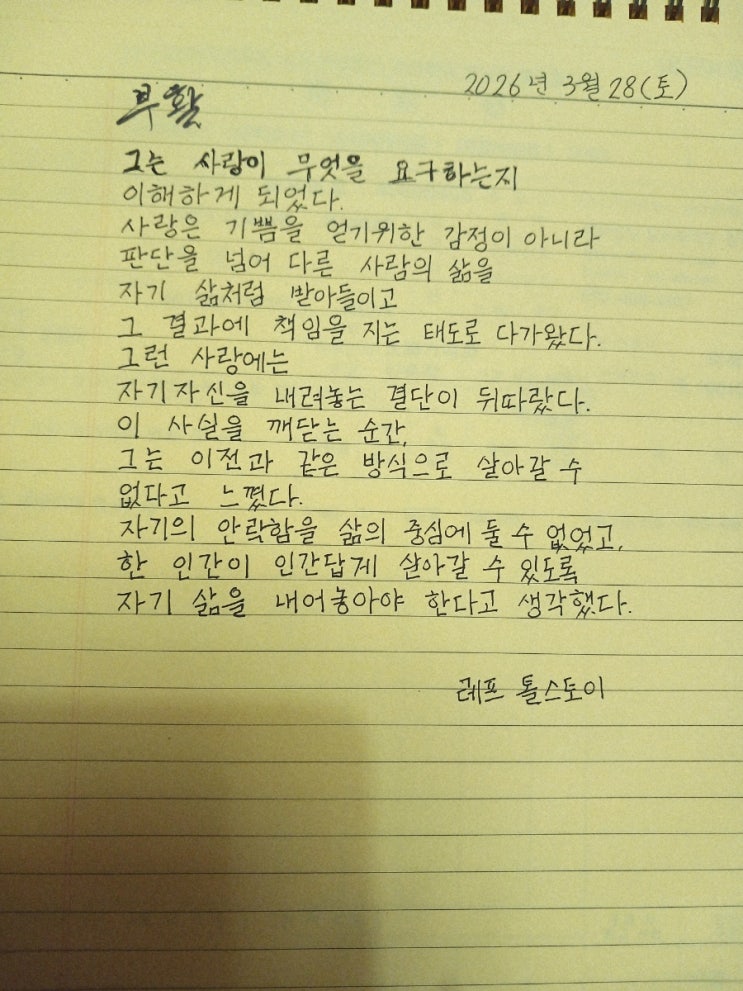 2026년 3월 28(토)
부활
그는 사랑이 무엇을 요구하는지
이해하게 되었다.
사랑은 기쁨을 얻기위한 감정이 아니라
판단을 넘어 다른 사람의 삶을
자기 삶처럼 받아들이고
그 결과에 책임을 지는 태도로 다가왔다.
그런 사랑에는
자기자신을 내려놓는 결단이 뒤따랐다.
이 사실을 깨닫는 순간,
그는 이전과 같은 방식으로 살아갈 수
없다고 느꼈다.
자기의 안락함을 삶의 중심에 둘 수 없었고,
한 인간이 인간답게 살아갈 수 있도록
자기 삶을 내어놓아야 한다고 생각했다.
레프 톨스토이